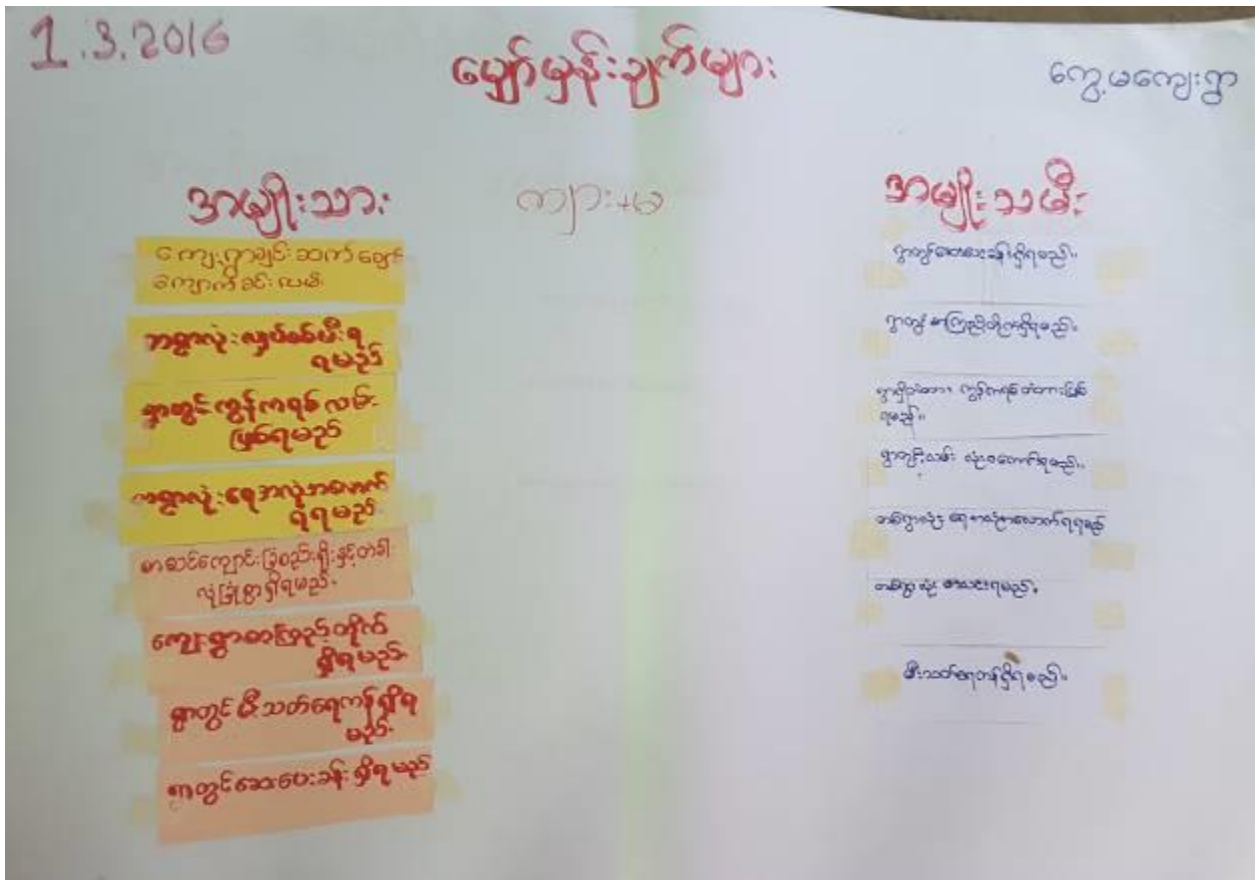 1.3.2016
မျှော်မှန်းချက်များ
ကွေ့မကျေးရွာ
အမျိုးသား
ကျား+မ
အမျိုးသမီး
ကျေးရွာချင်းဆက်
ကျောက်ခင်းလမ်း
တရွာလုံးလျှပ်စစ်မီးရ
ရမည်
ရွာတွင်းကွန်ကရစ်လမ်း
ဖြစ်ရမည်
တရွာလုံးရေအလုံအလောက်
ရရမည်
စာသင်ကျောင်းခြံစည်းရိုးနှင့်တံခါး
လုံခြုံစွာရှိရမည်။
ကျေးရွာစာကြည့်တိုက်
ရှိရမည်
ရွာတွင်မီးသတ်ရေကန်ရှိရ
မည်
ရွာတွင်ဆေးပေးခန်းရှိရမည်
ရွာတွင်ဆေးပေးခန်းရှိရမည်။
ရွာတွင်စာကြည့်တိုက်ရှိရမည်။
ကွန်ကရစ်တံတားဖြစ်
ရမည်။
တစ်ရွာလုံး ရေအလုံအလောက်ရရမည်
တစ်ရွာလုံး မီးလင်းရမည်။
မီးသတ်ရေကန်ရှိရမည်။